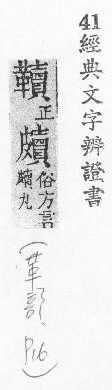 41 經典文字辨證書
韇正 俗方言丸
(革部, P16)